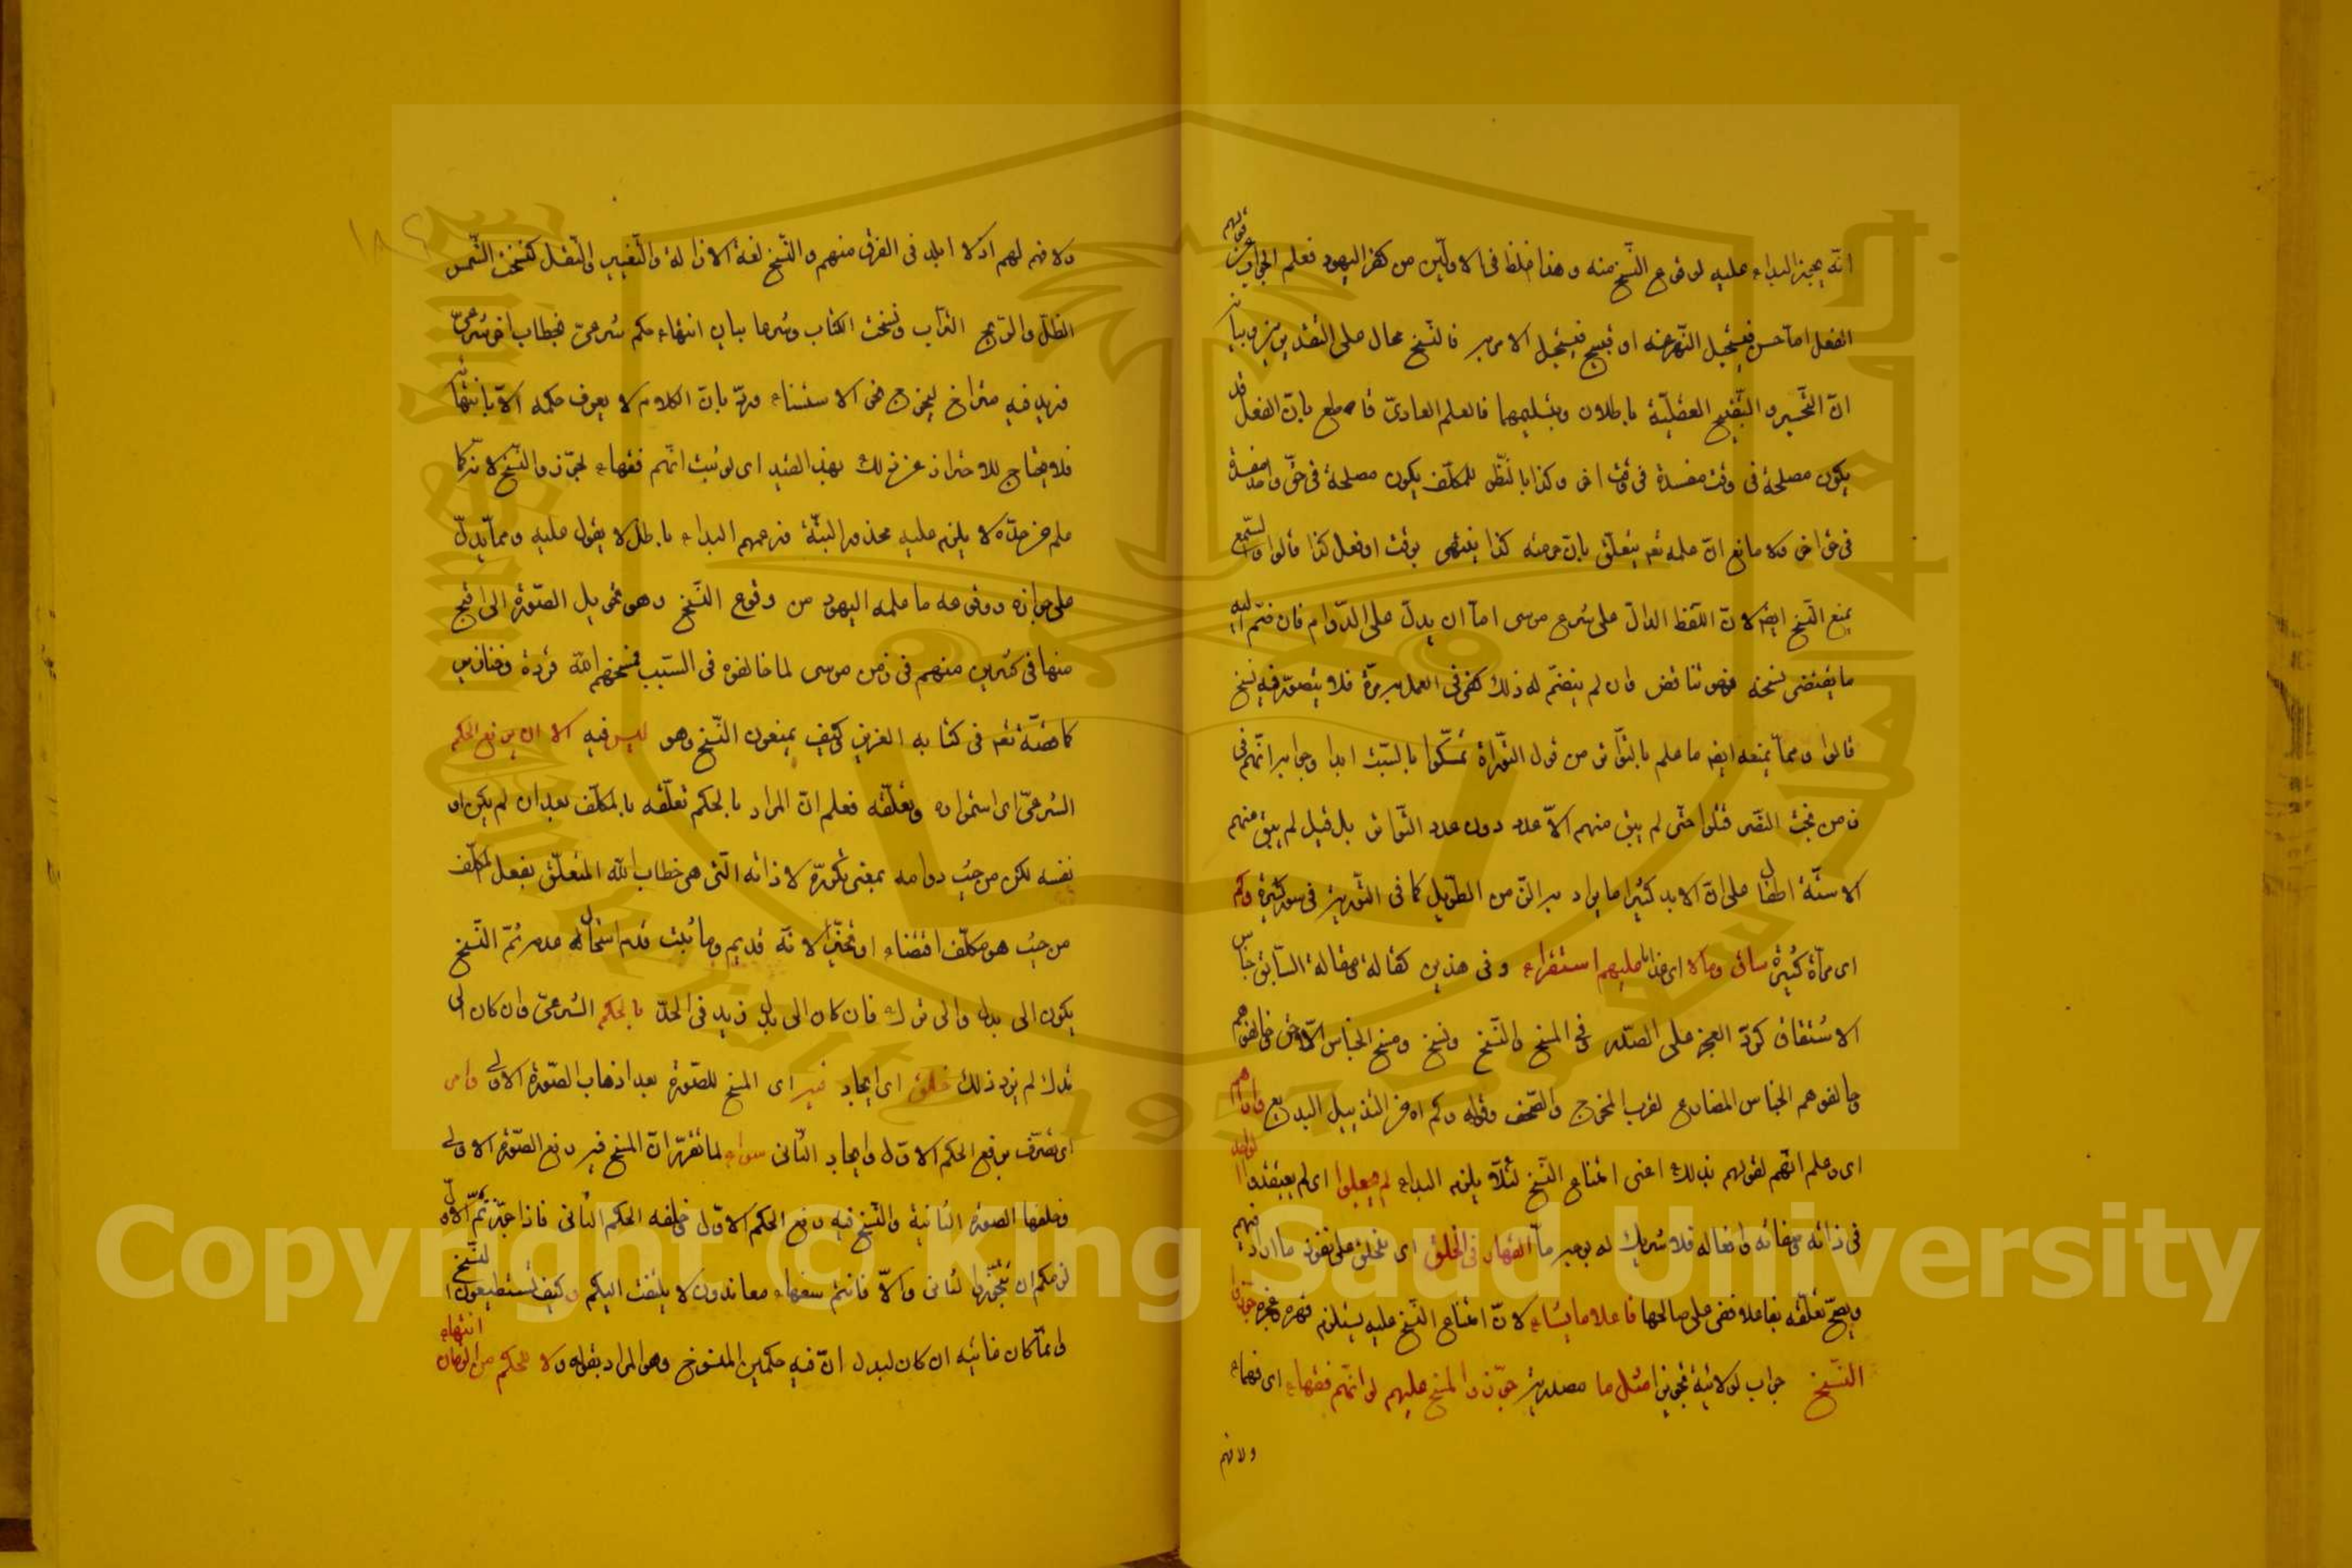 انه يجيز البداء عليه لوقوع النسخ منه وهذا غلط فى الاولين من كفر اليهود فعلم الجواب عن قولهم
الفعل اما حسن فيستحيل النهى عنه او قبيح فيستحيل الامر به فالنسخ محال على التقديرين وبيانه
ان التحسين والتقبيح العقلية باطلان وبتسليمهما فالعلم العادى قاطع بان الفعل قد
يكون مصلحة فى وقت مفسدة فى وقت اخر وكذا بالنظر للمكلف يكون مصلحة فى حق واحد مفسدة
فى حق اخر ولا مانع ان علمه تعالى يتعلق بان عرضه كذا ينتهى بوقت او فعل كذا قالوا والسمع
يمنع النسخ ايضا لان اللفظ الدال على شرع موسى اما ان يدل على الدوام فان ضم اليه
ما يقتضى نسخه فهو تناقض وان لم ينضم له ذلك كفى فى العمل به مرة فلا يتصور فيه نسخ
قالوا ومما يمنعه ايضا ما علم بالتواتر من قول التوراة تمسكوا بالسبت ابدا وجوابه انهم فى
زمن بخت النصر قتلوا حتى لم يبق منهم الا عدد دون عدد التواتر بل قيل لم يبق منهم
الا ستة اطفال على ان الابد كثيرا ما يراد به الزمن الطويل كما فى التورية فى سور كثيرة وكم
اى مرة كثيرة ساق وبالا اى عذابا عليهم استقراء وفى هذين كقالة ومقالة السابق جناس
الاشتقاق كرد العجز على الصدر فى المسخ والنسخ ونسخ ومسخ الجناس اللاحق فى خالفوهم
وحالفوهم الجناس المضارع لقرب المخرج والصحف وقوله وكم اه من التذييل البديع واراهم
اى وعلم انهم لقولهم بذلك اعنى امتناع النسخ لئلا يلزم البداء لم يجعلوا اى لم يعتقدوا الواحد
فى ذاته وصفاته وافعاله فلا شريك له بوجه ما القهار فى الخلق اى الخلق على نفوذ ما اراد فيهم
ويصح تعلقه بفاعلا فهى على صالحها فاعلا ما يشاء لان امتناع النسخ عليه يستلزم قهره وعجزه جوزوا
النسخ جواب لو لاتية تجويزا مثل ما مصدرية جوزوا المسخ عليهم لو انهم فقهاء اى فهماء
ولا فهم
ولا فهم لهم اذ لا ابلد فى الفرق منهم والنسخ لغة الازالة والتغيير والنقل كنسخت الشمس
الظل والريح التراب ونسخت الكتاب وشرعا بيان انتهاء حكم شرعى بخطاب اخر شرعى
وزيد فيه متراخ ليخرج نحو الاستثناء ورد بان الكلام لا يعرف حكمه الا بانتهائه
فلا يحتاج للاحتراز عن ذلك بهذا القيد اى لو ثبت انهم فقهاء لجوزوا النسخ لانه كما
علم من حده لا يلزم عليه محذور البتة فزعمهم البداء باطل لا يقول عليه ومما يدل
على جوازه ووقوعه ما علمه اليهود من وقوع النسخ وهو تحويل الصورة الى اقبح
منها فى كثيرين منهم فى زمن موسى لما خالفوه فى السبت فمسخهم الله قردة وخنازير
كما قصه تعالى فى كتابه العزيز وكيف يمنعون النسخ وهو ليس فيه الا ان يرفع الحكم
الشرعى اى استمراره وتعلقه فعلم ان المراد بالحكم تعلقه بالمكلف بعد ان لم يكن او
نفسه لكن من حيث دوامه بمعنى تكوره لا ذاته التى هى خطاب الله المتعلق بفعل المكلف
من حيث هو مكلف اقتضاء او تخييرا لانه قديم وما ثبت قدمه استحال عدمه ثم النسخ
يكون الى بدل والى ترك فان كان الى بدل زيد فى الحد بالحكم الشرعى وان كان الى
ترك لم يزد ذلك خلق اى ايجاد فيه اى المسخ للصورة بعد اذهاب الصورة الاولى وامر
اى تصرف برفع الحكم الاول وايجاد الثانى سواء لما تقرر ان المسخ فيه رفع الصورة الاولى
وخلفها الصورة الثانية والنسخ فيه رفع الحكم الاول وخلفه الحكم الثانى فاذا جوزتم الاول
لزمكم ان تجوزوا الثانى والا فانتم سفهاء معاندون لا يلتفت اليكم وكيف تستطيعون النسخ
وانما كان فائتيه ان كان لبدل ان فيه حكمين المنسوخ وهو المراد بقوله ولا لحكم من الزمان انتهاء
Copyright © King Saud University
1957